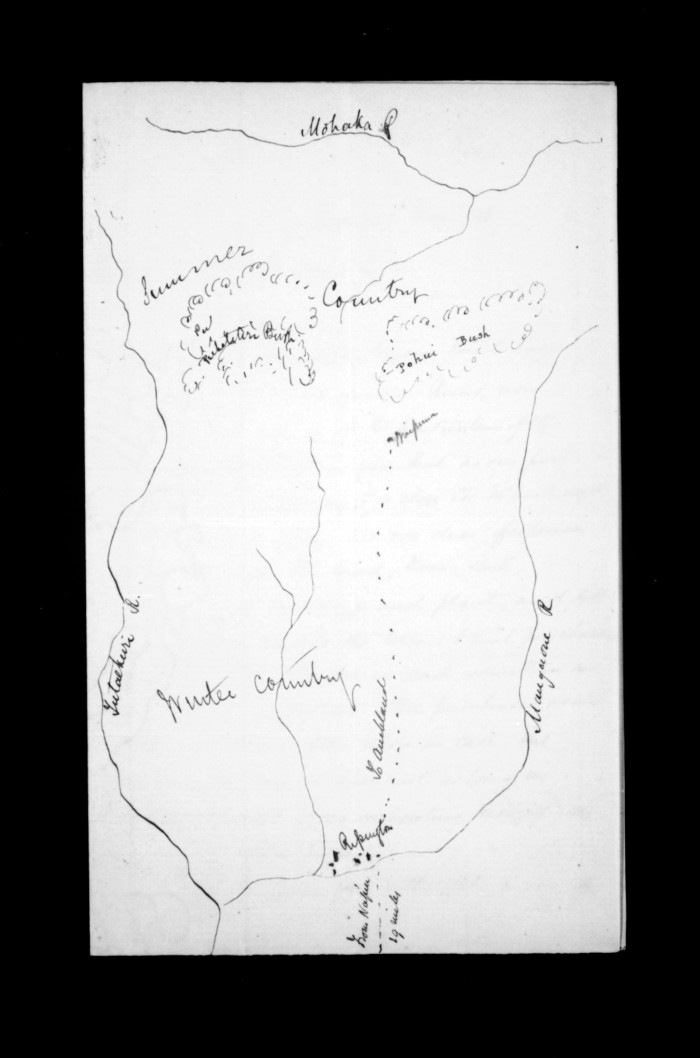 Mohaka R
Summer Country
Bush
Pohui Bush
Tutaekuri R.
Winter Country
To Auckland
Mangaone R
From Napier
19 miles